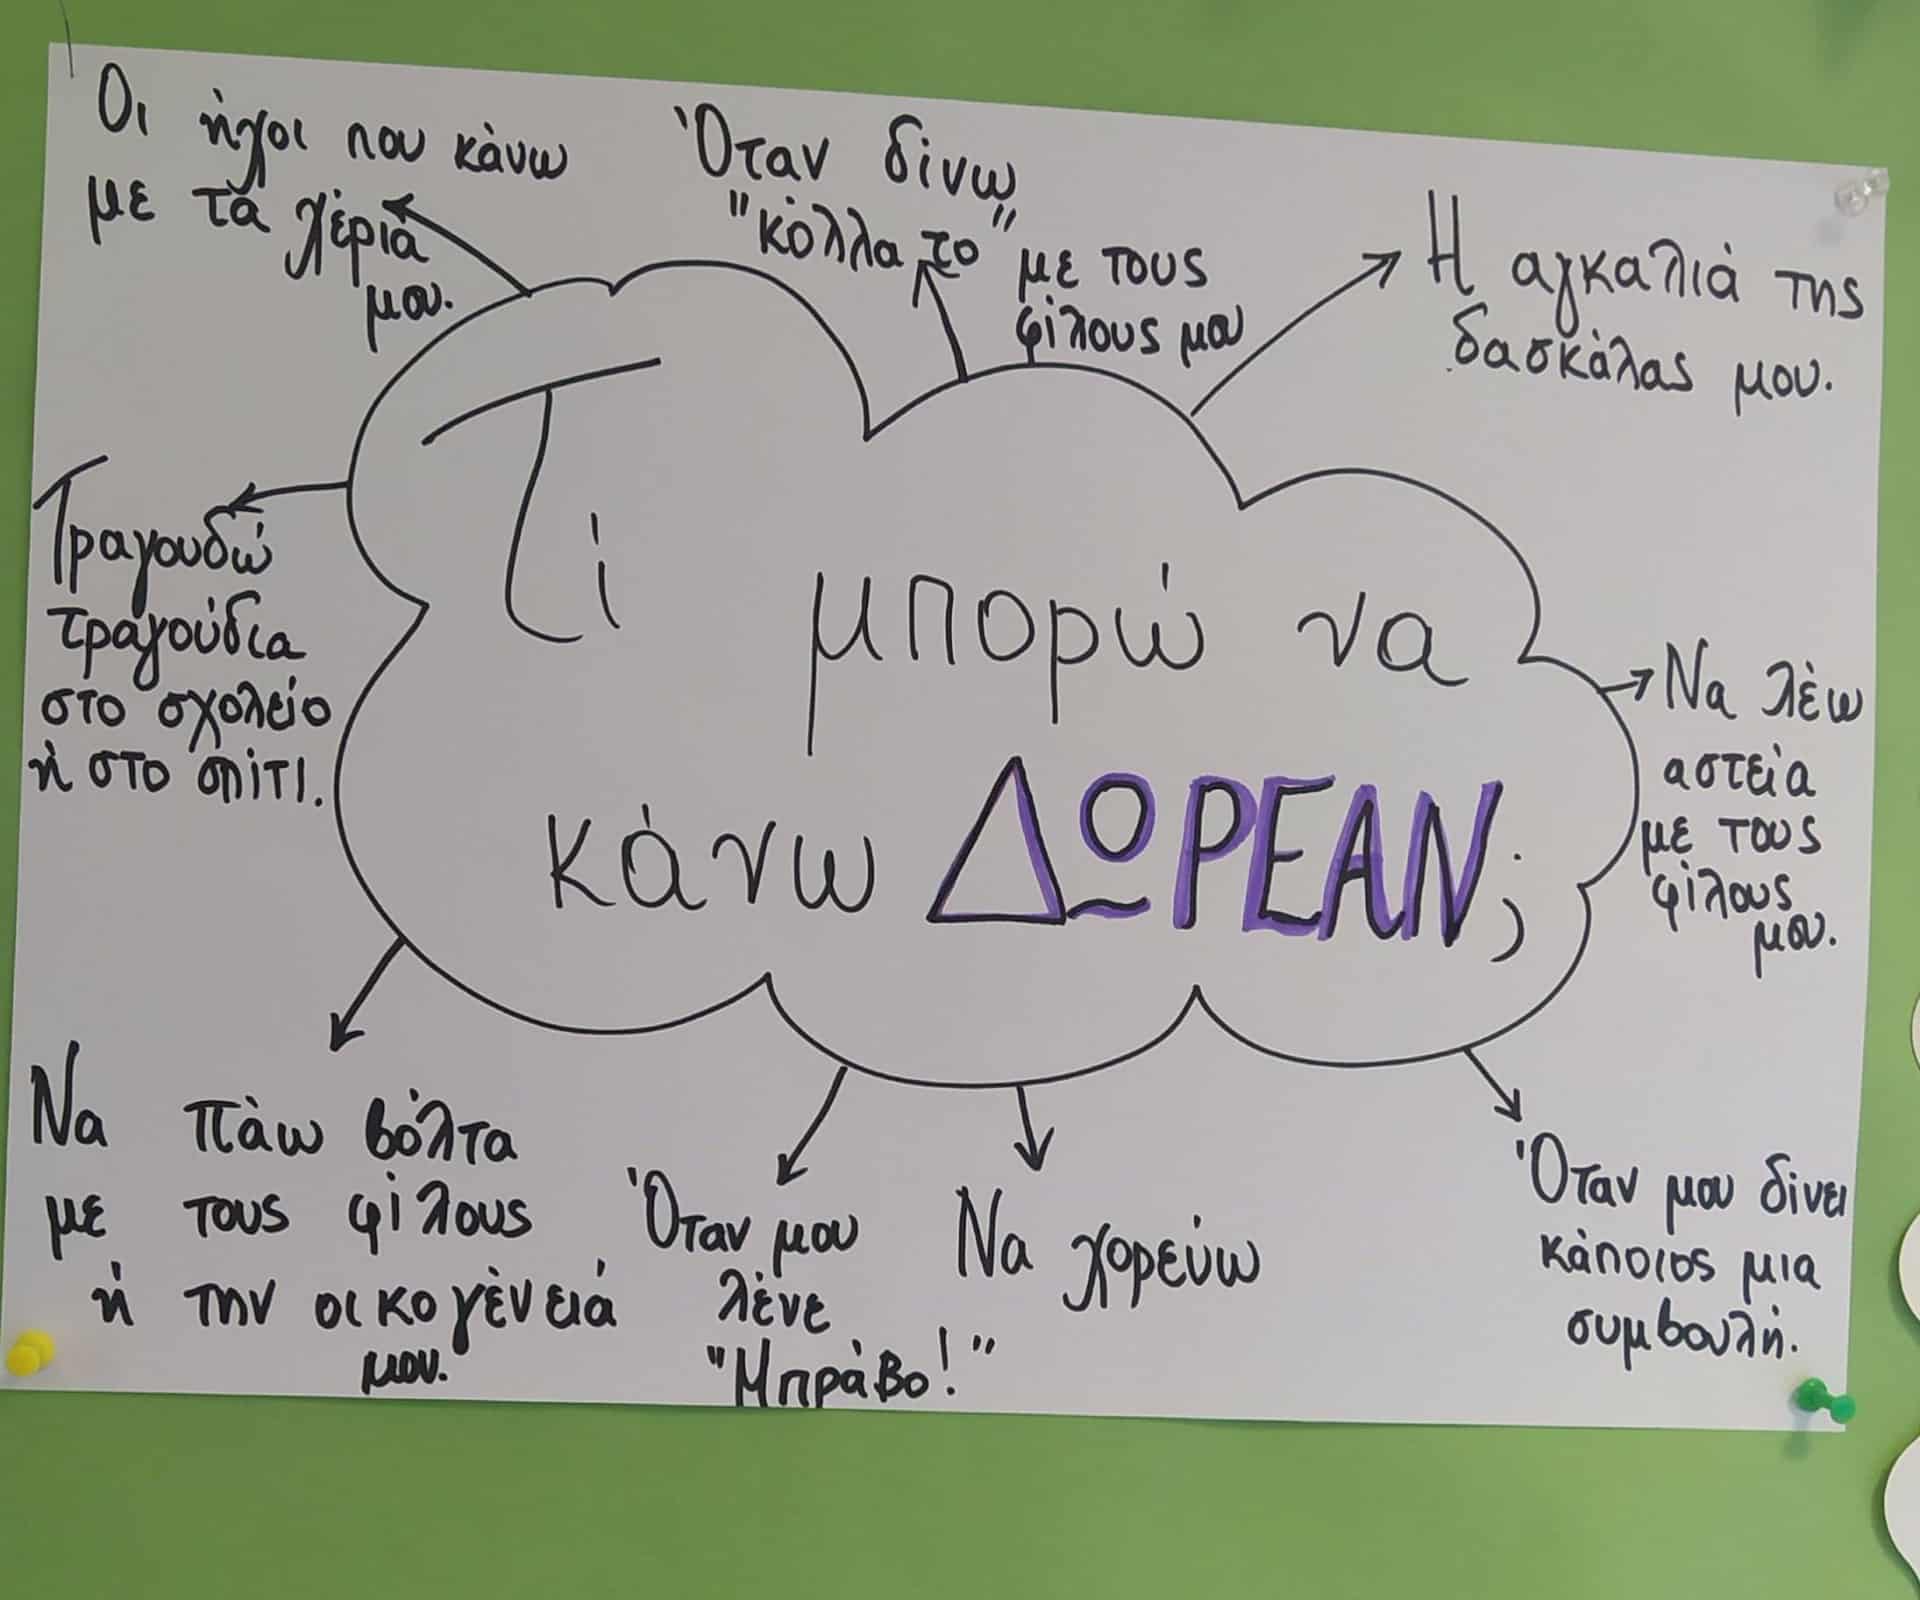 Οι ήχοι που κάνω
με τα χέρια
μου.
Όταν δίνω
"κόλλα το"
με τους
φίλους μου
Η αγκαλιά της
δασκάλας μου.
Τραγουδώ
τραγούδια
στο σχολείο
ή στο σπίτι.
Τί μπορώ να
κάνω ΔΩΡΕΑΝ;
Να λέω
αστεία
με τους
φίλους
μου.
Να πάω βόλτα
με τους φίλους
ή την οικογένειά
μου.
Όταν μου
λένε
"Μπράβο!"
Να χορεύω
Όταν μου δίνει
κάποιος μια
συμβουλή.